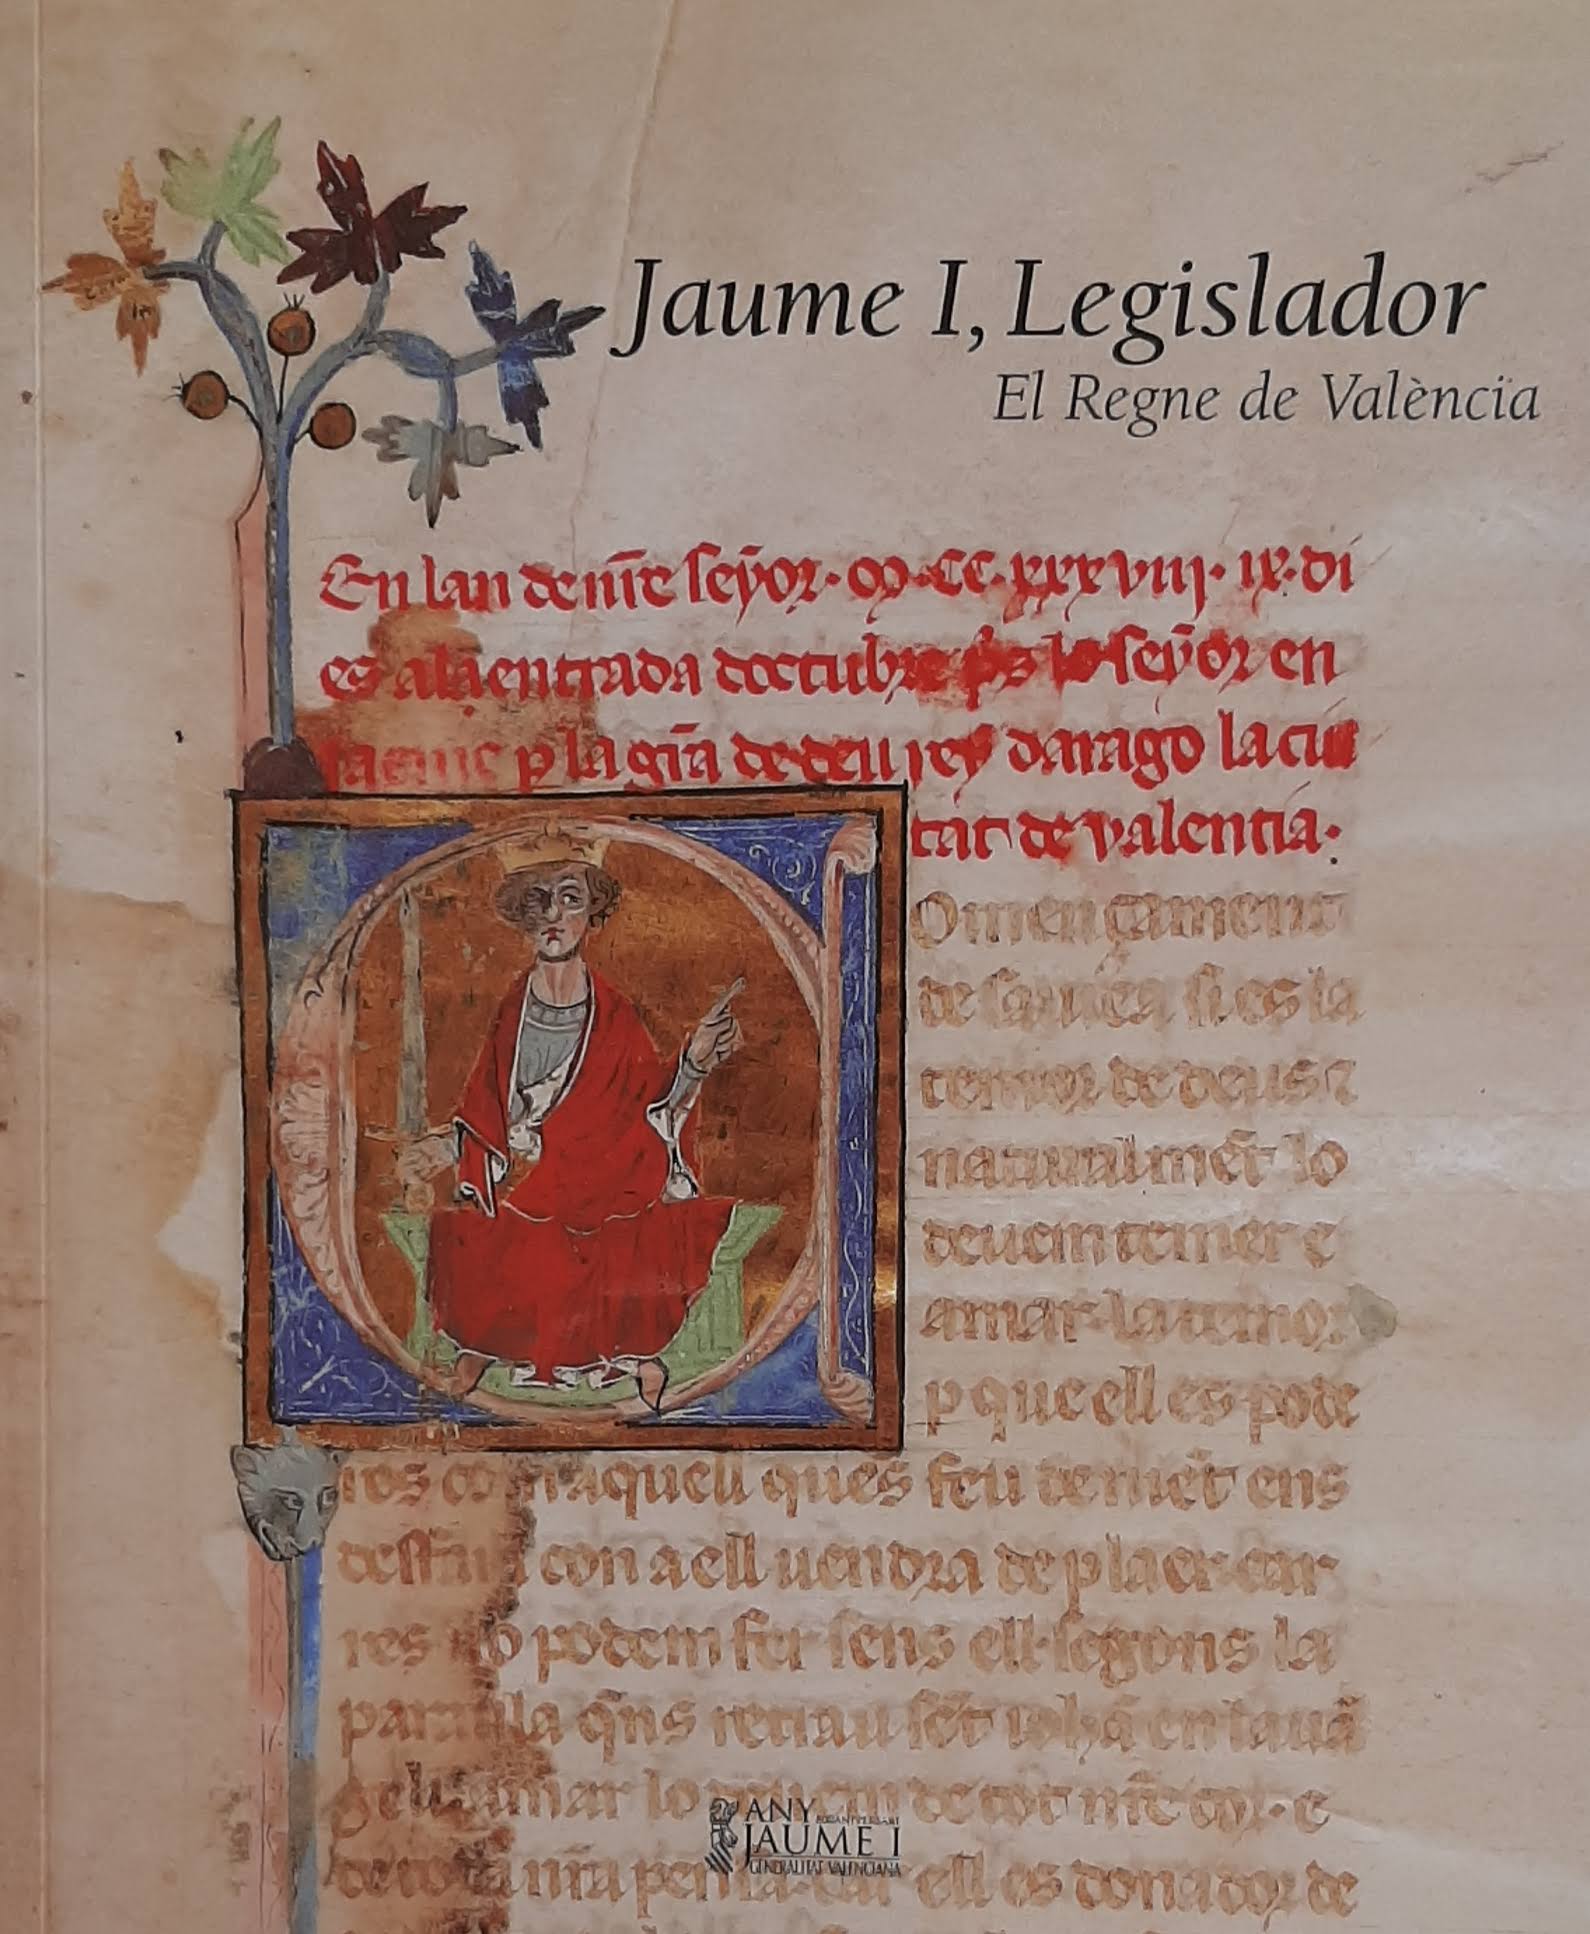 Jaume I, Legislador
El Regne de València
En lan de nr̃e seỹor· M·CC·xxxviij· ix·di
es a la entrada doctubre p̃s lo seỹor en
Jacme p la gr̃a de deu rey darago la ciu
tat de valentia·
Omençament
de saviea si es la
temor de deus
naturalmẽt lo
deuem temer e
amar·la temor
p que ell es pode
ros aquell ques feu de niẽt ens
con a ell uendra de plaer·car
res no podem fer sens ell·segons la
paraula q̃ns retrau sẽt iohã en lauã
amar lo deuem de tot nr̃e cor· e
de tota nr̃a pensa·car ell es donador de
ANY
JAUME I
GENERALITAT VALENCIANA